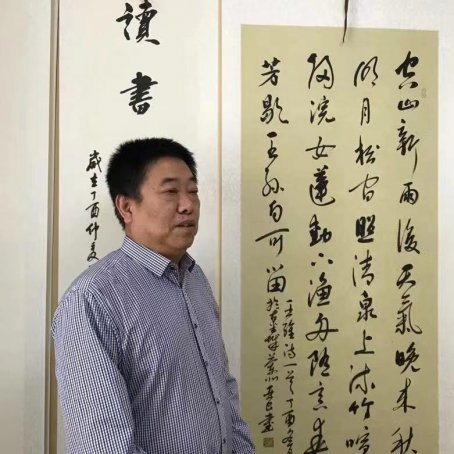 空山新雨後天氣晚来秋
明月松间照清泉上流竹喧
歸浣女蓮動下漁舟隨意春
芳歇王孫自可留
王維詩一首丁酉
讀書
歲在丁酉仲夏